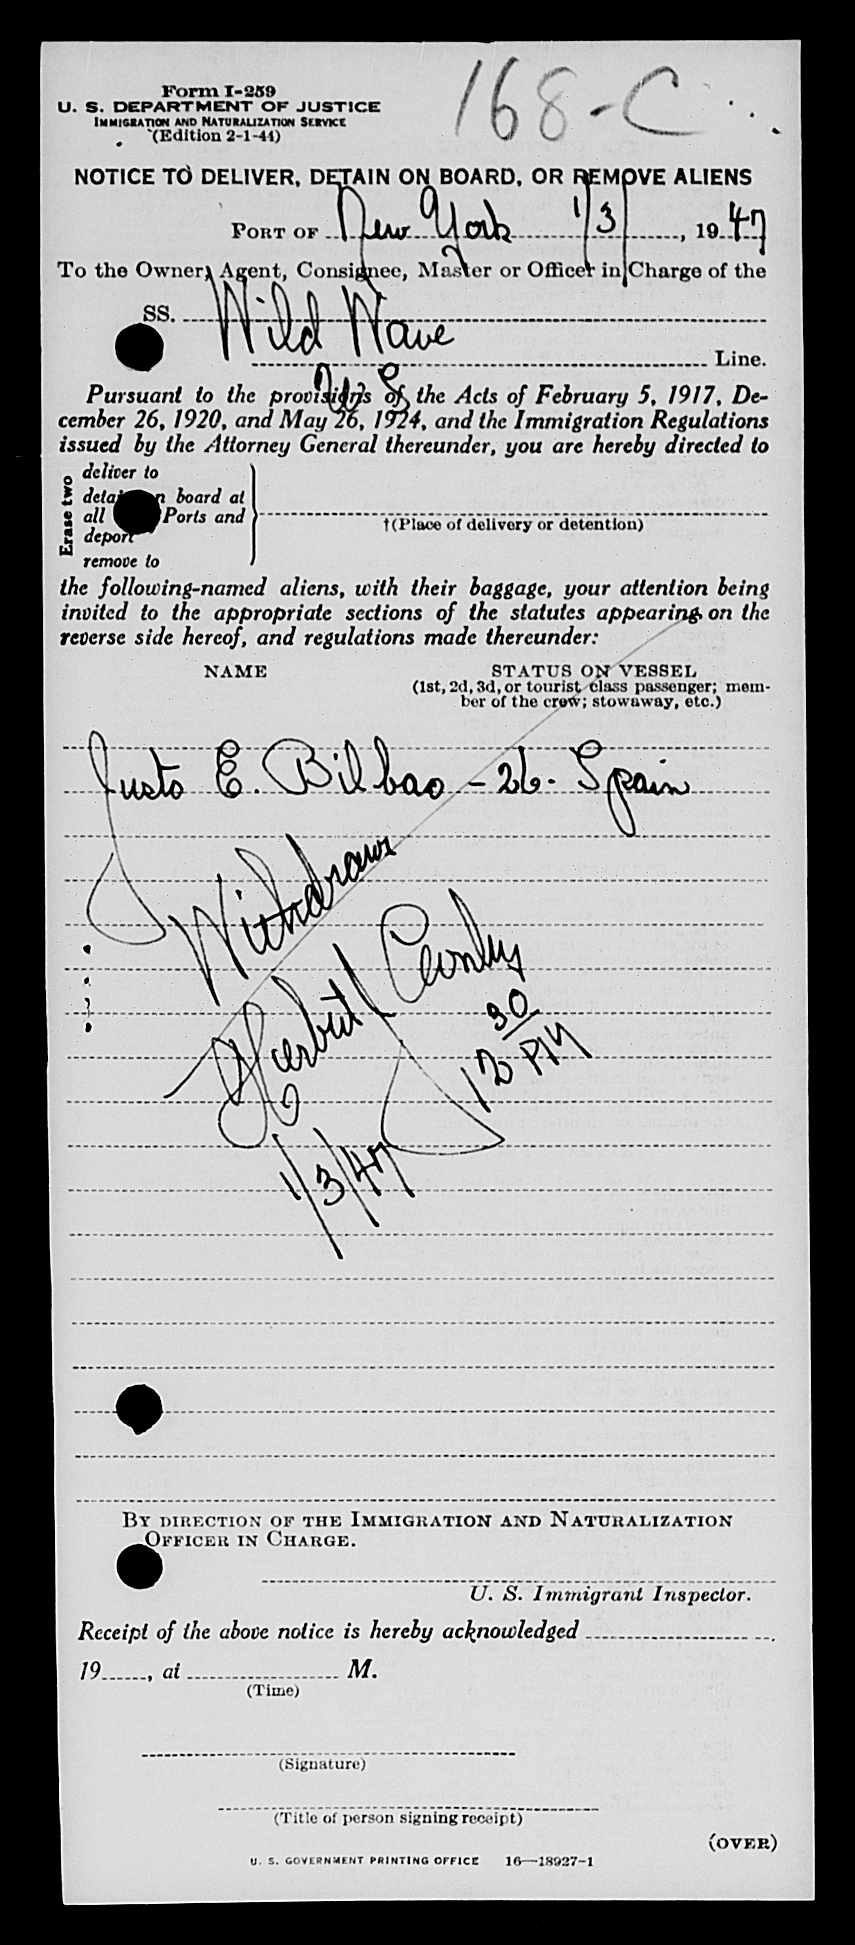 168-C
Form I-259
U. S. DEPARTMENT OF JUSTICE
IMMIGRATION AND NATURALIZATION SERVICE
(Edition 2-1-44)
NOTICE TO DELIVER, DETAIN ON BOARD, OR REMOVE ALIENS
PORT OF New York 1/3/, 1947
To the Owner, Agent, Consignee, Master or Officer in Charge of the
SS. Wild Wave
Line.
Pursuant to the provisions of the Acts of February 5, 1917, De-
cember 26, 1920, and May 26, 1924, and the Immigration Regulations
issued by the Attorney General thereunder, you are hereby directed to
Erase two
deliver to
detain on board at
all Ports and
deport
remove to
†(Place of delivery or detention)
the following-named aliens, with their baggage, your attention being
invited to the appropriate sections of the statutes appearing on the
reverse side hereof, and regulations made thereunder:
NAME STATUS ON VESSEL
(1st, 2d, 3d, or tourist class passenger; mem-
ber of the crew; stowaway, etc.)
Justo E. Bilbao - 26 - Spain
Withdrawn
Herbert
1/3/47 12 30 PM
BY DIRECTION OF THE IMMIGRATION AND NATURALIZATION
OFFICER IN CHARGE.
U. S. Immigrant Inspector.
Receipt of the above notice is hereby acknowledged
19, at M.
(Time)
(Signature)
(Title of person signing receipt)
(OVER)
U. S. GOVERNMENT PRINTING OFFICE 16—18927-1